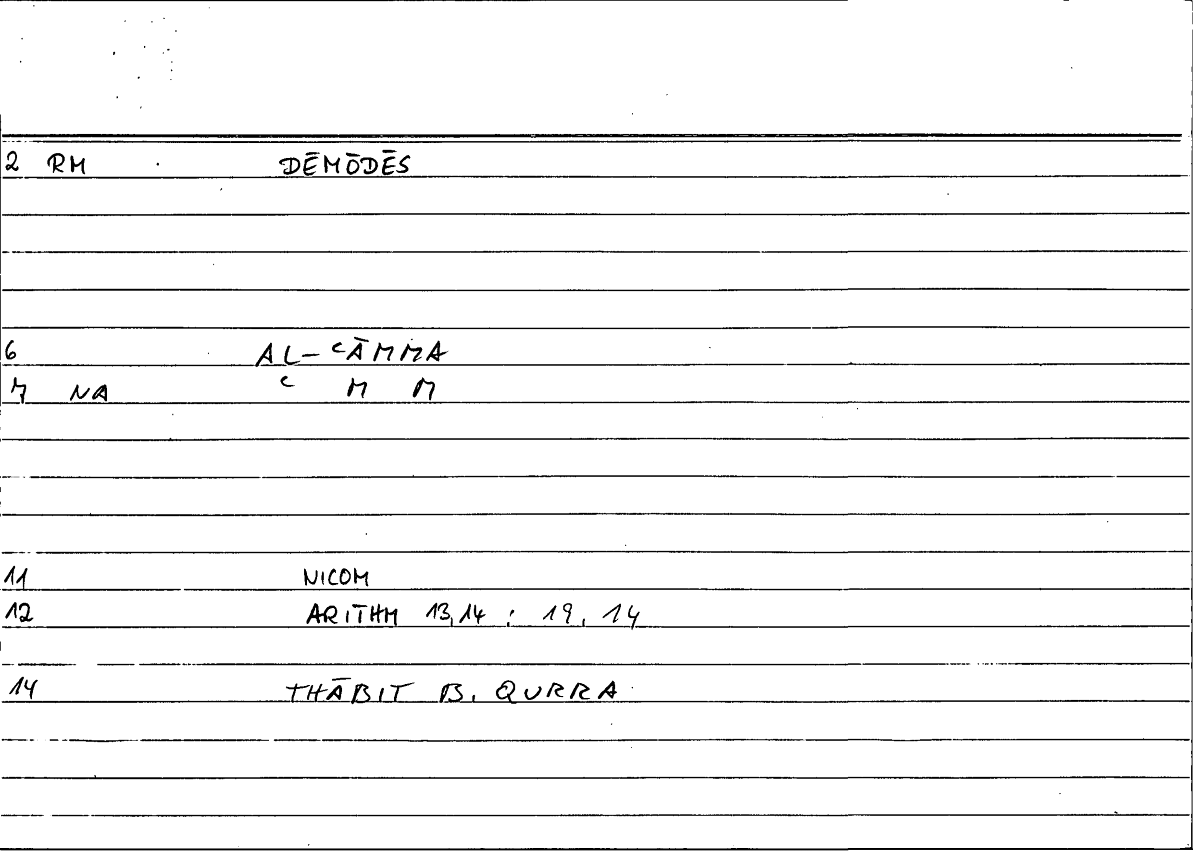 2 RM DĒMŌDĒS
6 AL-ʿĀMMA
7 NA ʿ M M
11 NICOM
12 ARITHM 13,14 : 19, 14
14 THĀBIT B. QURRA